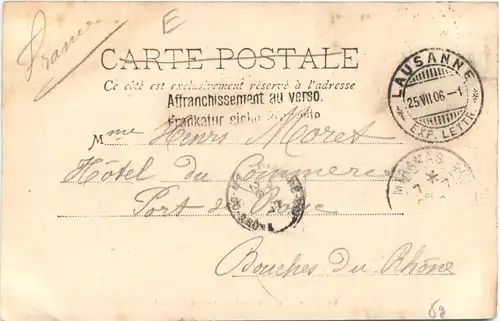 France
E
CARTE POSTALE
Ce côté est exclusivement réservé à l'adresse
Affranchissement au verso.
Frankatur siehe
LAUSANNE
25.VII.06.-1
EXP. LETTR.
Mme Henri Moret
Hôtel du Commerce
MIRAMAS
Port de Bouc
Bouches du Rhône